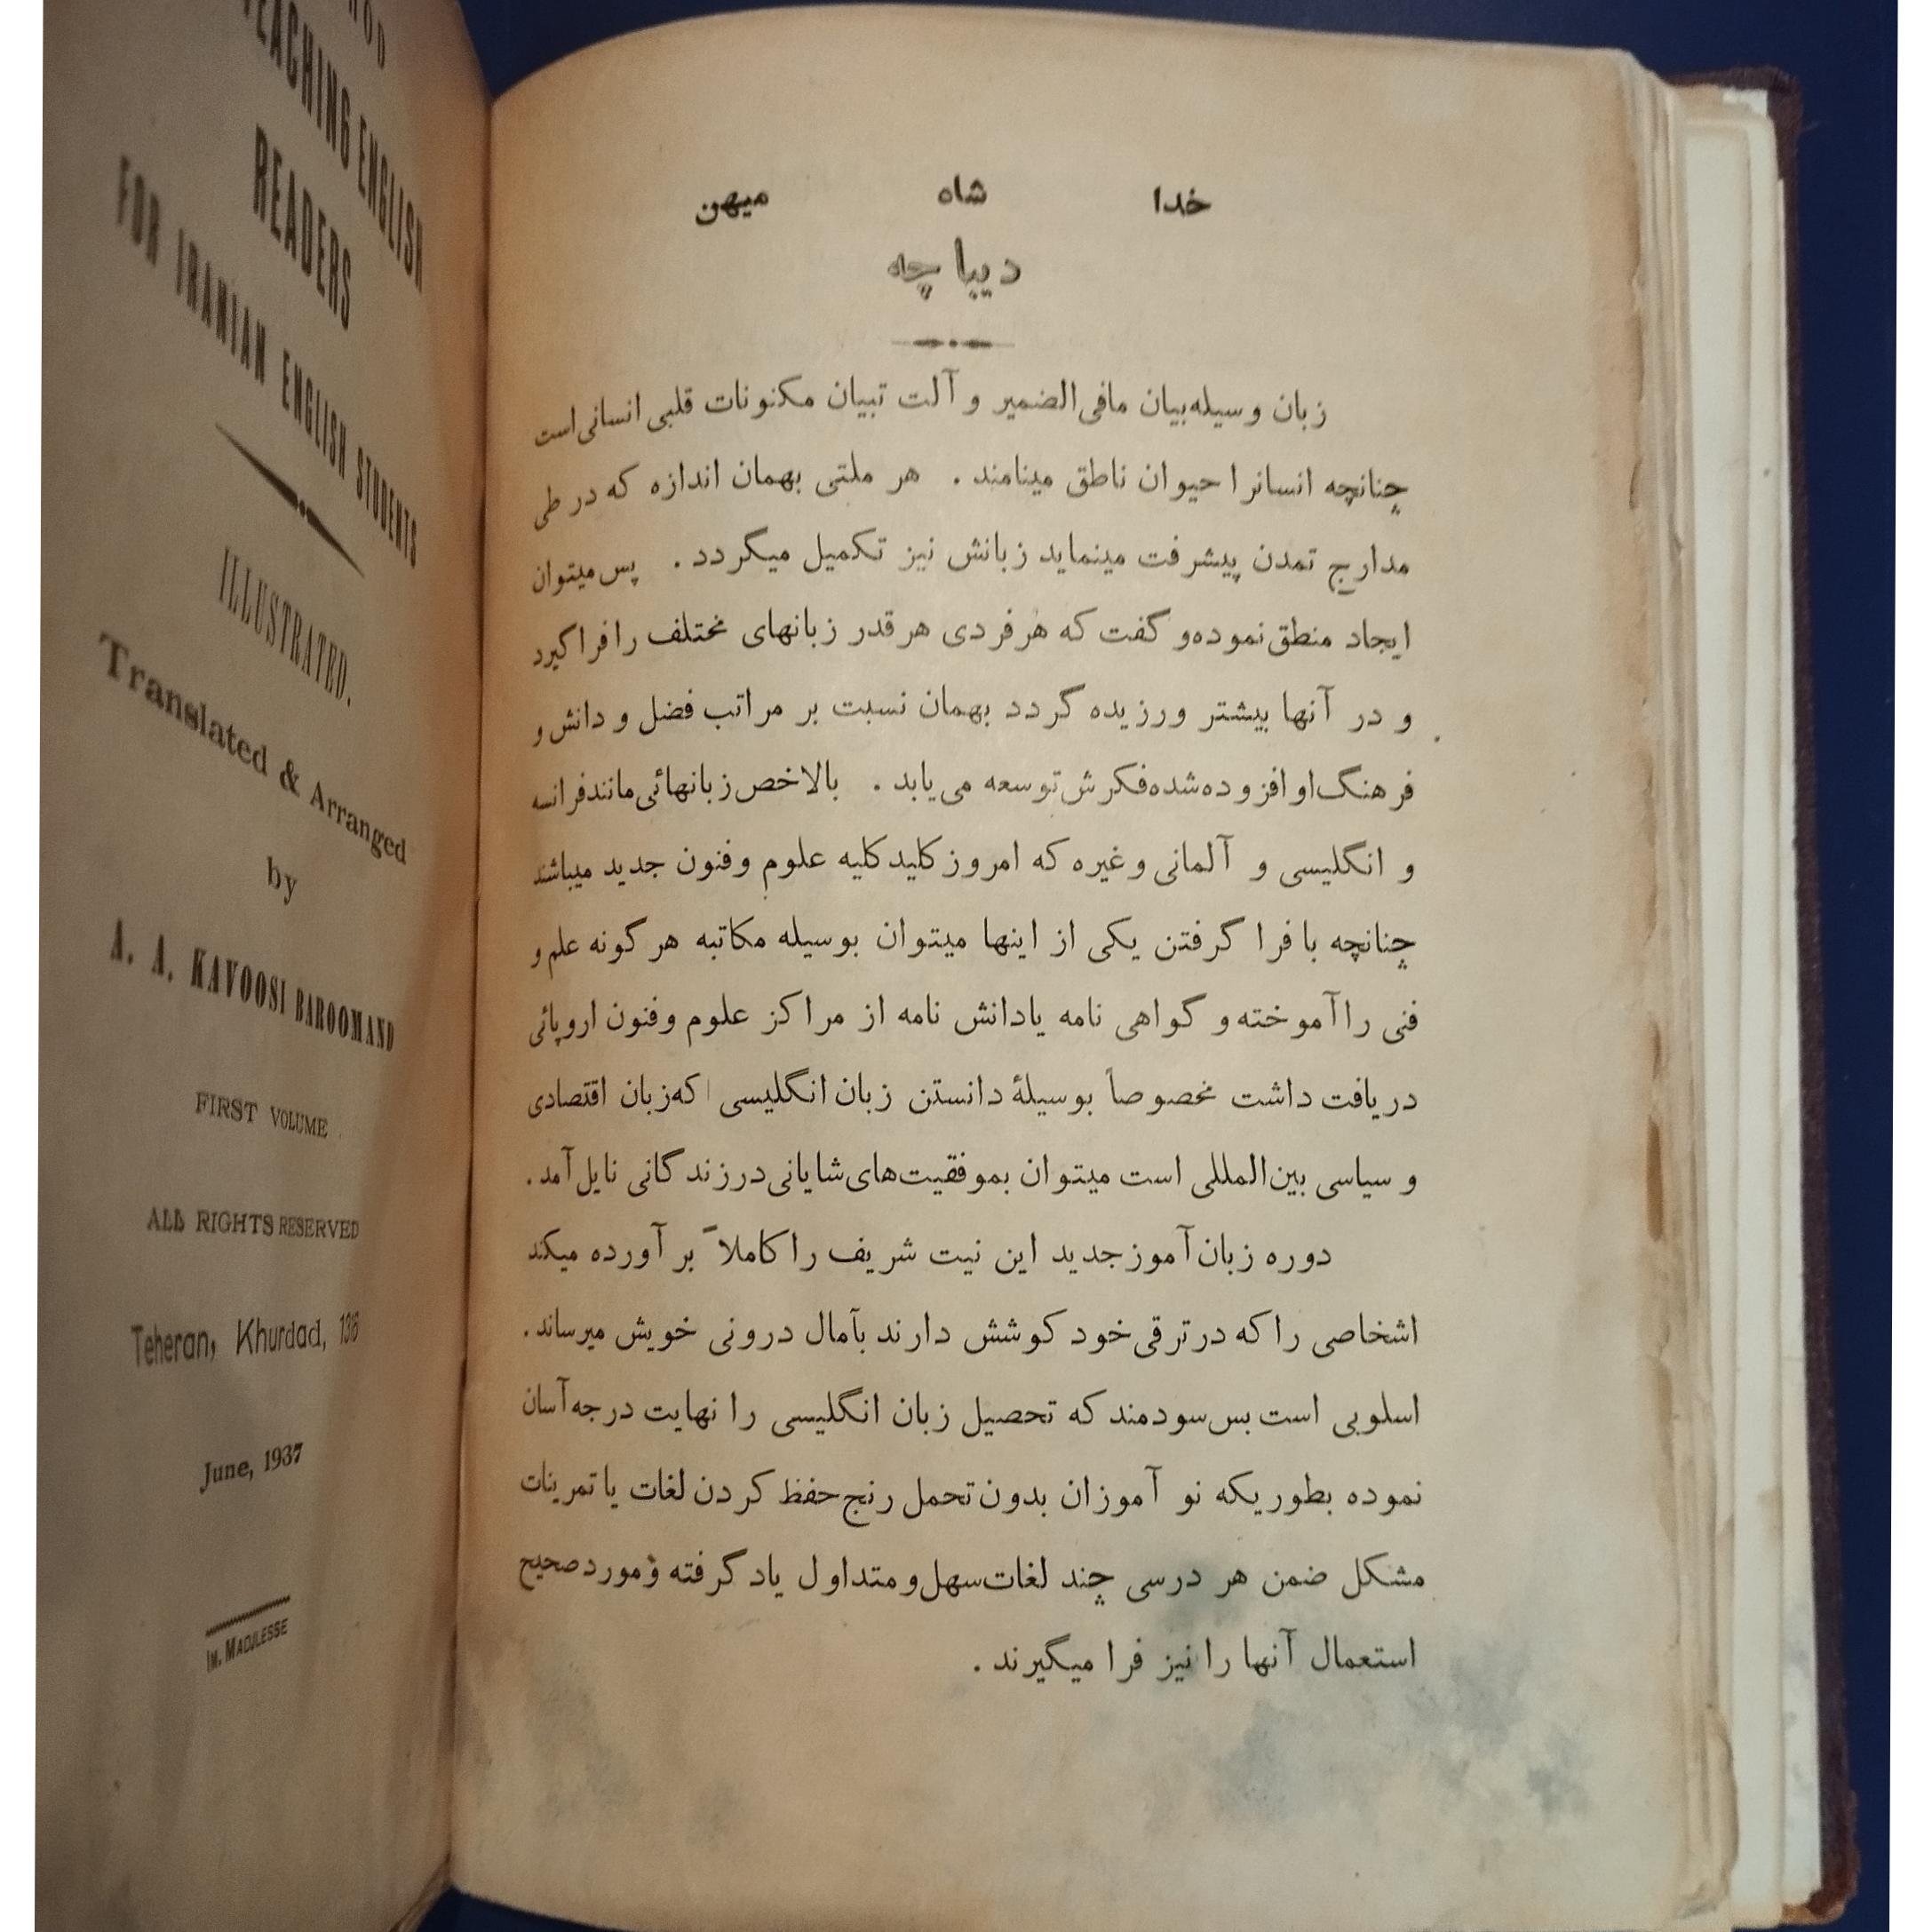 TEACHING ENGLISH
READERS
FOR IRANIAN ENGLISH STUDENTS
ILLUSTRATED.
Translated & Arranged
by
A. A. KAVOOSI BAROOMAND
FIRST VOLUME
ALL RIGHTS RESERVED
Teheran, Khurdad,
June, 1937
IM. MADJLESSE
خدا شاه میهن
دیباچه
زبان وسیله بیان مافی‌الضمیر و آلت تبیان مکنونات قلبی انسانی است
چنانچه انسانرا حیوان ناطق مینامند . هر ملتی بهمان اندازه که در طی
مدارج تمدن پیشرفت مینماید زبانش نیز تکمیل میگردد . پس میتوان
ایجاد منطق نموده و گفت که هر فردی هر قدر زبانهای مختلف را فراگیرد
و در آنها بیشتر ورزیده گردد بهمان نسبت بر مراتب فضل و دانش و
فرهنگ او افزوده شده فکرش توسعه می‌یابد . بالاخص زبانهائی مانند فرانسه
و انگلیسی و آلمانی و غیره که امروز کلید کلیه علوم و فنون جدید میباشند
چنانچه با فرا گرفتن یکی از اینها میتوان بوسیله مکاتبه هر گونه علم و
فنی را آموخته و گواهی نامه یا دانش نامه از مراکز علوم و فنون اروپائی
دریافت داشت مخصوصاً بوسیلهٔ دانستن زبان انگلیسی که زبان اقتصادی
و سیاسی بین‌المللی است میتوان بموفقیت‌های شایانی در زندگانی نایل آمد .
دوره زبان آموز جدید این نیت شریف را کاملاً بر آورده میکند
اشخاصی را که در ترقی خود کوشش دارند بآمال درونی خویش میرساند .
اسلوبی است بس سودمند که تحصیل زبان انگلیسی را نهایت درجه آسان
نموده بطوریکه نو آموزان بدون تحمل رنج حفظ کردن لغات یا تمرینات
مشکل ضمن هر درسی چند لغات سهل و متداول یاد گرفته و مورد صحیح
استعمال آنها را نیز فرا میگیرند .